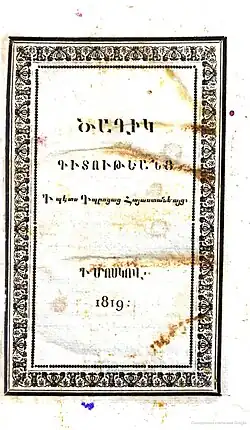 ԾԱՂԻԿ
ԳԻՏՈՒԹԵԱՆՑ
Ի պէտս Դպրոցաց Հայաստանեայց
Ի ՄՈՍԿՈՎ,
1819: